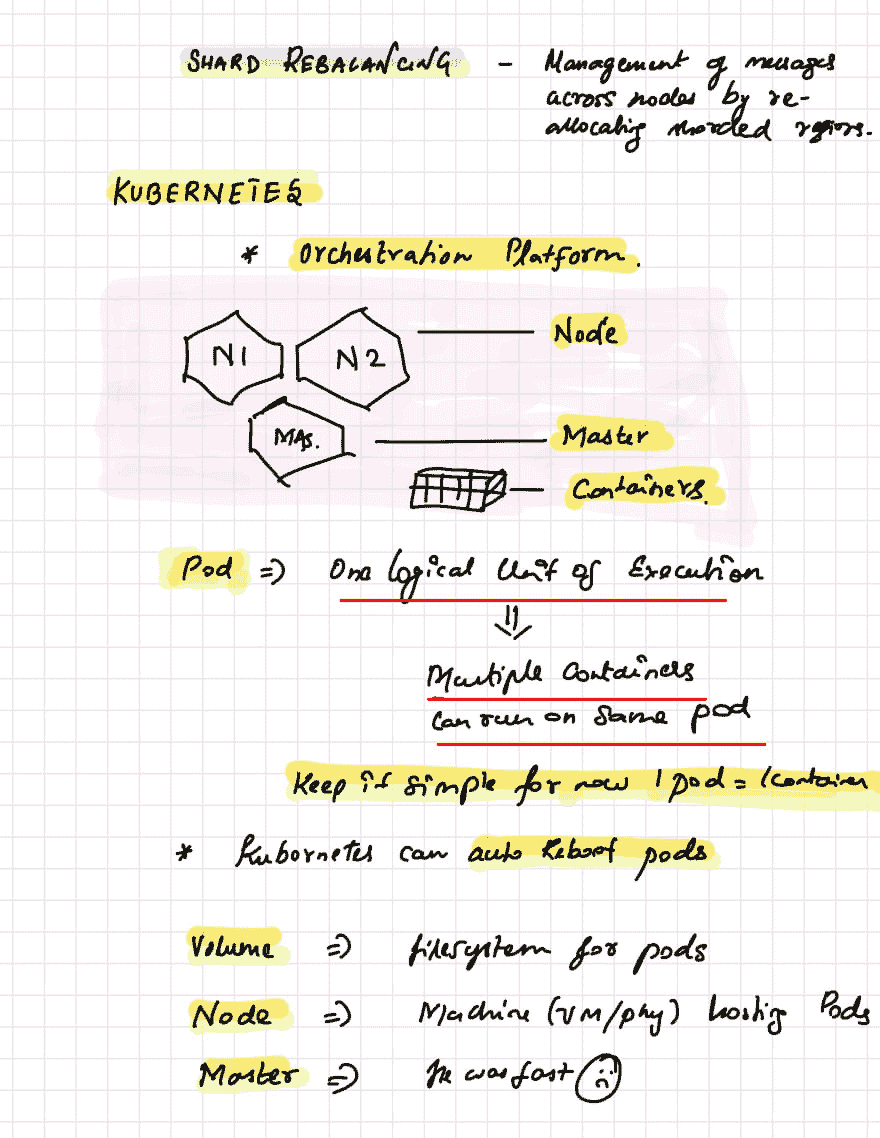 SHARD REBALANCING - Management of messages
across nodes by re-
allocating sharded regions.
KUBERNETES
* Orchestration Platform.
N1 N2 Node
MAS. Master
Containers.
Pod => One logical Unit of Execution
Multiple Containers
can run on same pod
Keep it simple for now 1 pod = 1 container
* Kubornetes can auto Reboot pods
Volume => filesystem for pods
Node => Machine (VM/phy) hosting Pods
Master => He was fast